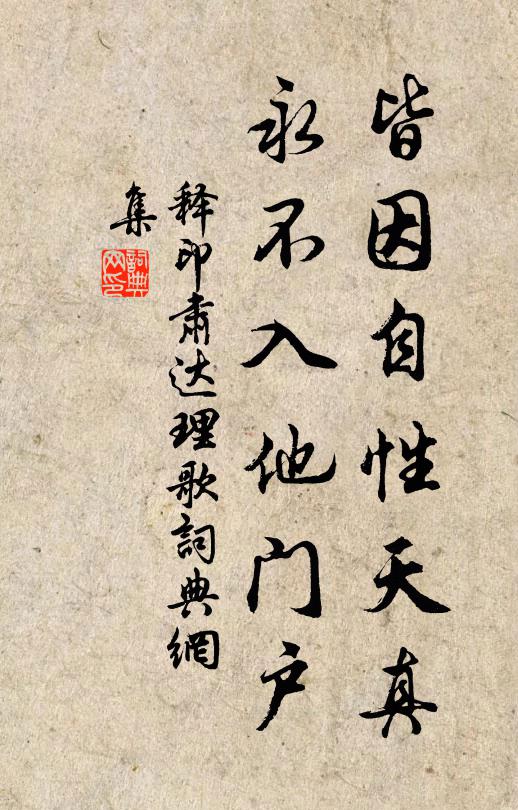 皆因自性天真
永不入他门户
释印肃达理歌詞典網
集
詞典网印